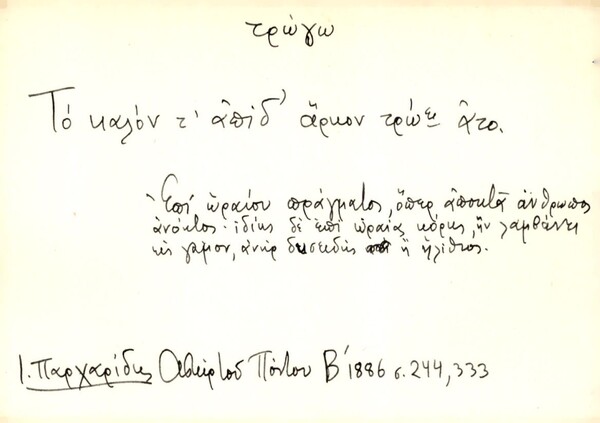 τρώγω
Τό καλόν τ' ἀπίδ' ἄρκον τρώει ἄτο.
Ἐπί ὡραίου πράγματος, ὅπερ ἀποκτᾷ ἄνθρωπος
ἀνόητος· ἰδίως δέ ἐπί ὡραίας κόρης, ἥν λαμβάνει
εἰς γάμον, ἀνήρ δυσειδής ἤ ἠλίθιος.
Ι. Παρχαρίδης Πόντου Β' 1886 σ. 244, 333